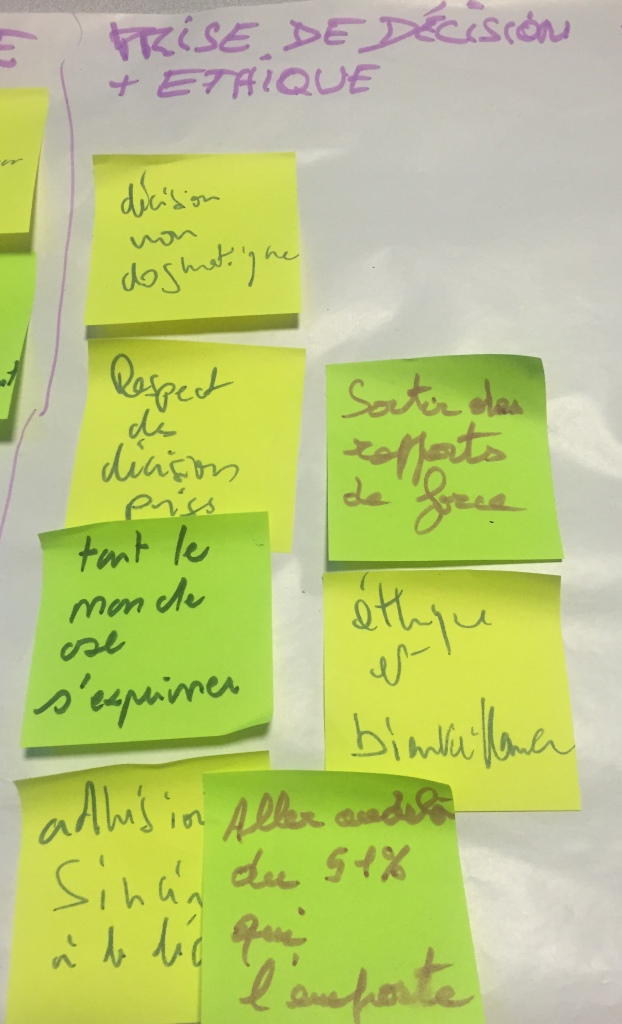 PRISE DE DÉCISION
+ ETHIQUE
décision
non
dogmatique
Respect
des
décisions
prises
Sortir des
rapports
de force
tout le
monde
ose
s'exprimer
éthique
et
bienveillance
adhésion
à la
Aller audelà
du 51%
qui
l'emporte